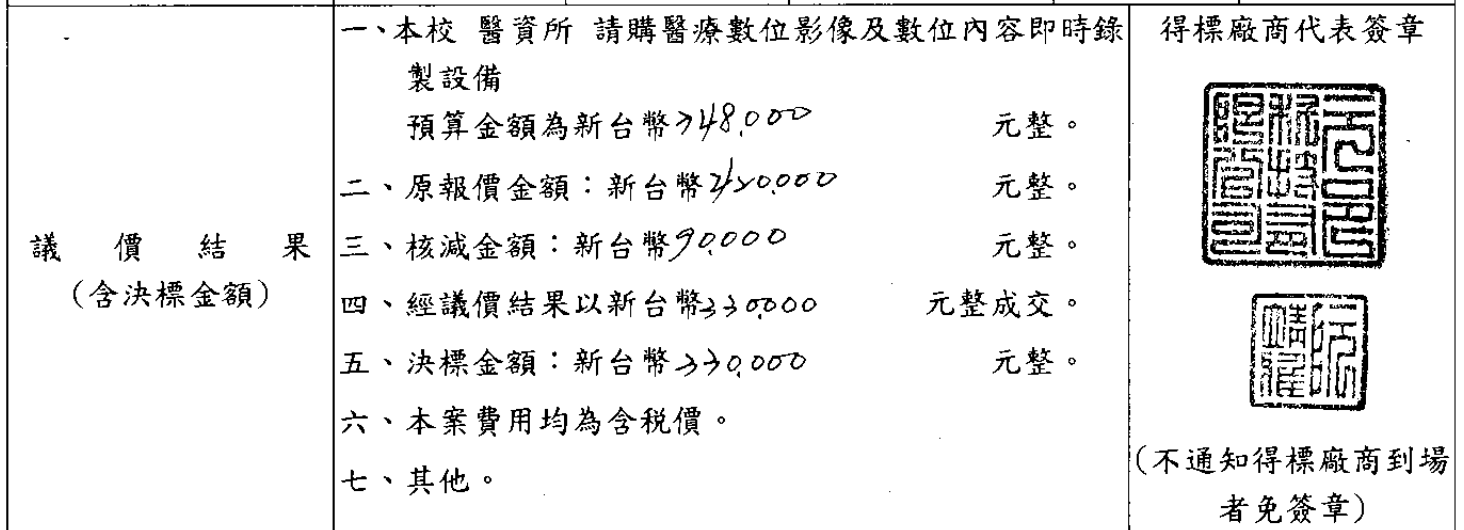 議價結果
(含決標金額)
一、本校 醫資所 請購醫療數位影像及數位內容即時錄
製設備
預算金額為新台幣348,000 元整。
二、原報價金額：新台幣420,000 元整。
三、核減金額：新台幣90,000 元整。
四、經議價結果以新台幣330,000 元整成交。
五、決標金額：新台幣330,000 元整。
六、本案費用均為含稅價。
七、其他。
得標廠商代表簽章
(不通知得標廠商到場
者免簽章)